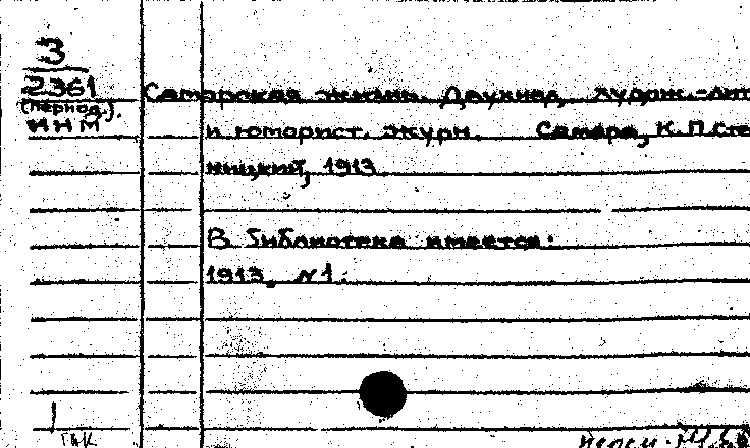 3
2361
(период.)
ИНМ
Самарская жизнь. Двухнед. худож.-лит
и юморист. журн. Самара, К.П.Сте
ницкий, 1913.
В библиотеке имеется:
1913. №1.